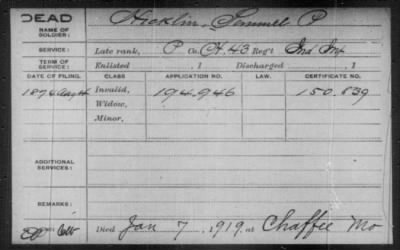 DEAD
NAME OF SOLDIER: Hicklin, Samuel P
SERVICE: Late rank, P Co. H. 43 Reg't Ind Inf
TERM OF SERVICE: Enlisted , 1 Discharged , 1
DATE OF FILING. CLASS APPLICATION NO. LAW. CERTIFICATE NO.
1874 Invalid, 194.946 150.839
Widow,
Minor,
ADDITIONAL SERVICES:
REMARKS:
Died Jan 7, 1919, at Chaffee Mo